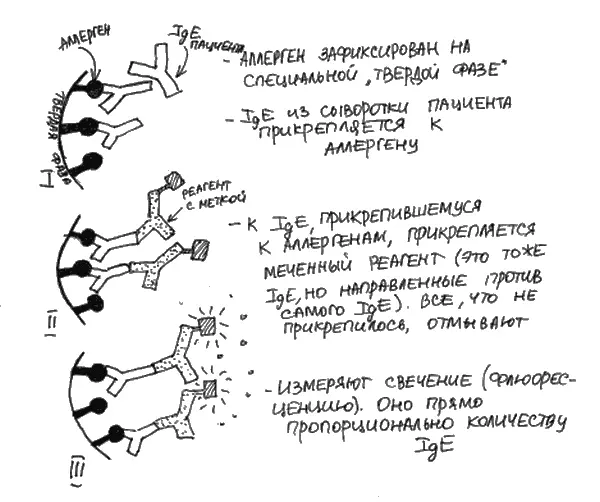 АЛЛЕРГЕН
IgE ПАЦИЕНТА
- АЛЛЕРГЕН ЗАФИКСИРОВАН НА
СПЕЦИАЛЬНОЙ „ТВЕРДОЙ ФАЗЕ"
- IgE ИЗ СЫВОРОТКИ ПАЦИЕНТА
ПРИКРЕПЛЯЕТСЯ К
АЛЛЕРГЕНУ
ТВЕРДАЯ ФАЗА
I
РЕАГЕНТ
С МЕТКОЙ
- К IgE, ПРИКРЕПИВШЕМУСЯ
К АЛЛЕРГЕНАМ, ПРИКРЕПЛЯЕТСЯ
МЕЧЕННЫЙ РЕАГЕНТ (ЭТО ТОЖЕ
IgE, НО НАПРАВЛЕННЫЕ ПРОТИВ
САМОГО IgE). ВСЕ, ЧТО НЕ
ПРИКРЕПИЛОСЬ, ОТМЫВАЮТ
II
- ИЗМЕРЯЮТ СВЕЧЕНИЕ (ФЛЮОРЕС-
ЦЕНЦИЮ). ОНО ПРЯМО
ПРОПОРЦИОНАЛЬНО КОЛИЧЕСТВУ
IgE
III